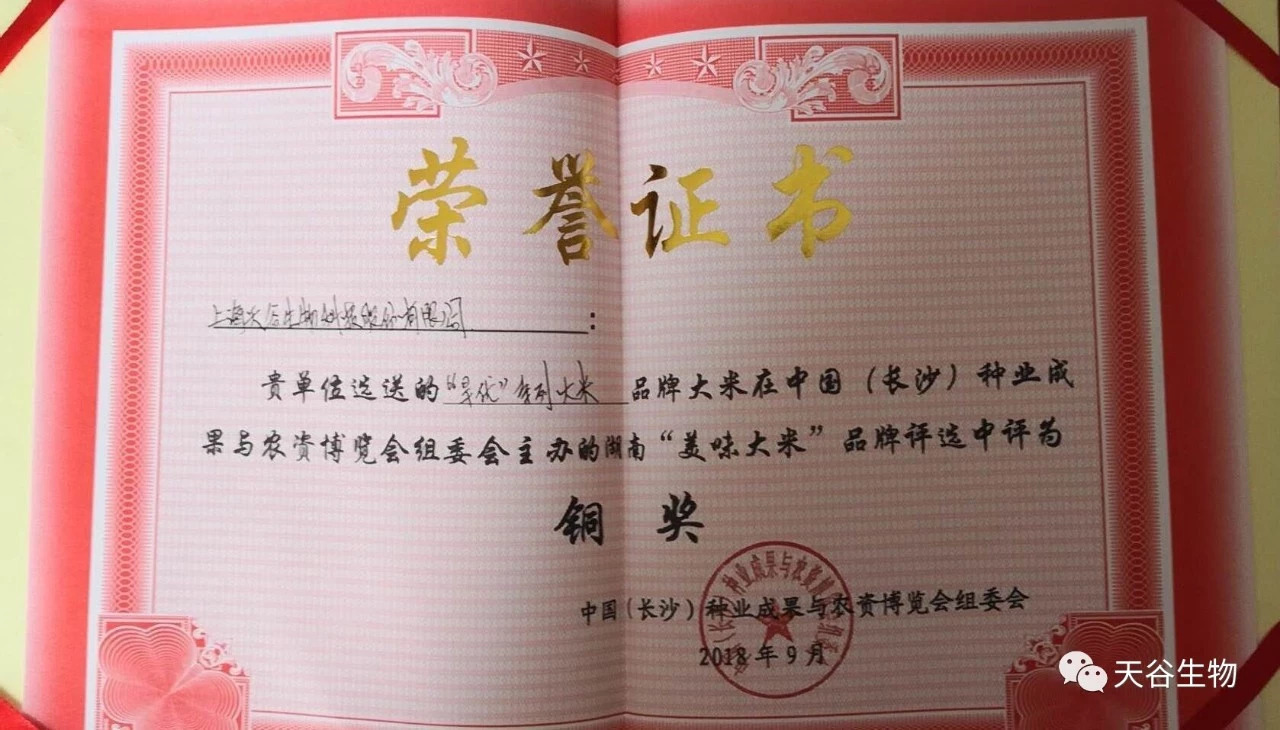 荣誉证书
上海天谷生物科技股份有限公司:
贵单位选送的“旱优”系列大米 品牌大米在中国(长沙)种业成
果与农资博览会组委会主办的湖南“美味大米”品牌评选中评为
铜 奖
中国(长沙)种业成果与农资博览会组委会
2018年9月
天谷生物